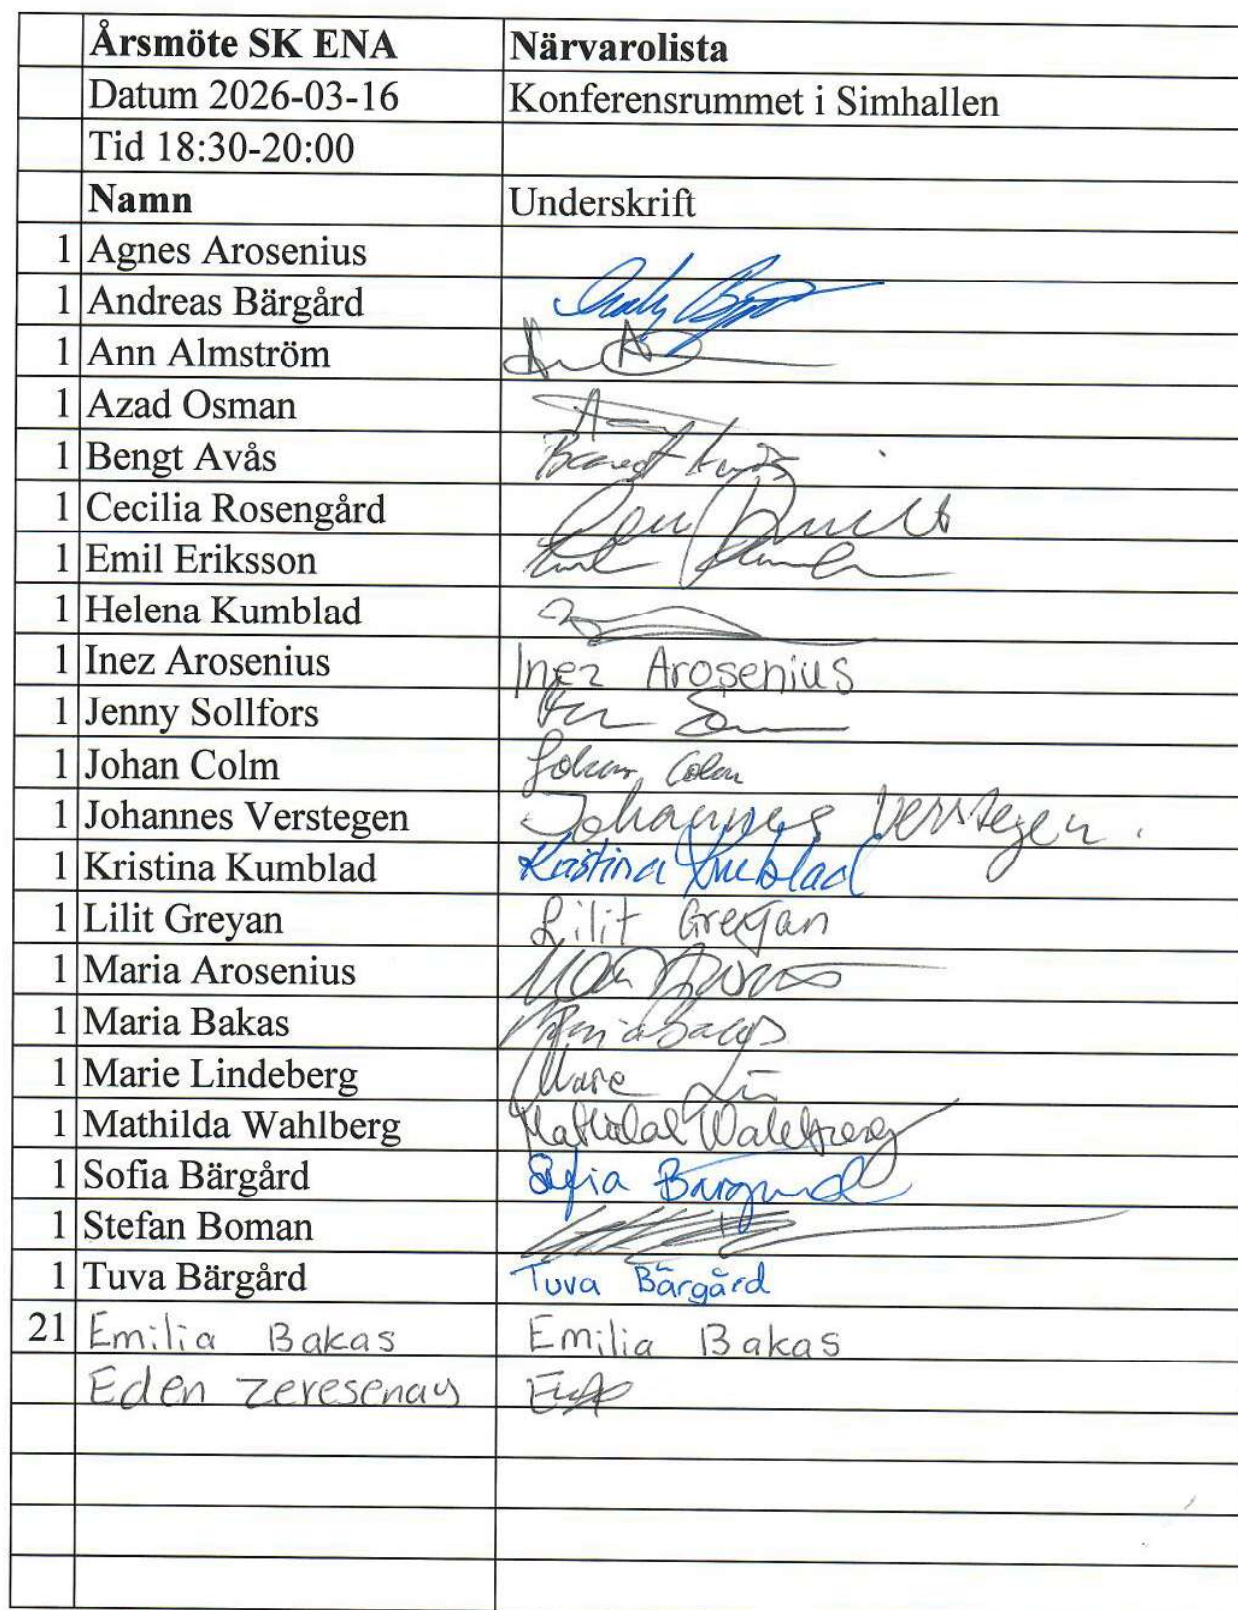 Årsmöte SK ENA Närvarolista
Datum 2026-03-16 Konferensrummet i Simhallen
Tid 18:30-20:00
Namn Underskrift
1 Agnes Arosenius
1 Andreas Bärgård
1 Ann Almström
1 Azad Osman
1 Bengt Avås
1 Cecilia Rosengård
1 Emil Eriksson
1 Helena Kumblad
1 Inez Arosenius Inez Arosenius
1 Jenny Sollfors
1 Johan Colm Johan Colm
1 Johannes Verstegen Johannes Verstegen.
1 Kristina Kumblad Kristina Kumblad
1 Lilit Greyan Lilit Greyan
1 Maria Arosenius
1 Maria Bakas Maria Bakas
1 Marie Lindeberg Marie
1 Mathilda Wahlberg Mathilda Wahlberg
1 Sofia Bärgård Sofia Bärgård
1 Stefan Boman
1 Tuva Bärgård Tuva Bärgård
21 Emilia Bakas Emilia Bakas
Eden Zeresenay